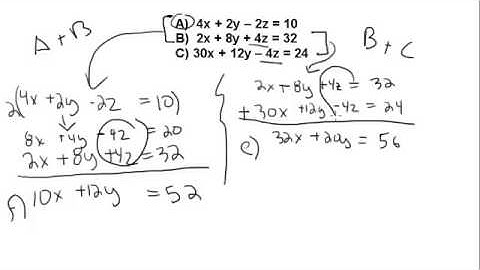 A) 4x + 2y – 2z = 10
B) 2x + 8y + 4z = 32
C) 30x + 12y – 4z = 24
A + B
B + C
2(4x + 2y - 2z = 10)
8x + 4y - 4z = 20
2x + 8y + 4z = 32
F) 10x + 12y = 52
2x + 8y + 4z = 32
+ 30x + 12y - 4z = 24
e) 32x + 20y = 56